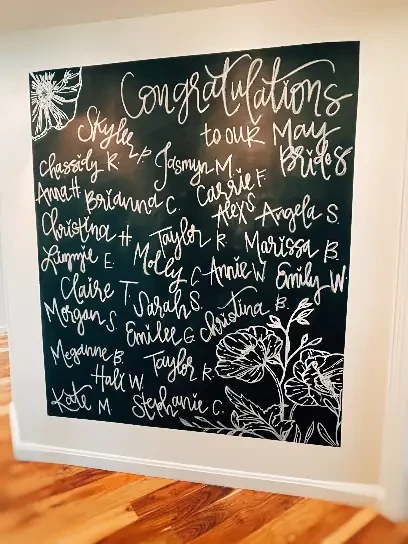 Congratulations
to our May
Brides
Skyler P.
Chassidy R. Jasmyn M.
Anna H Brianna C. Carrie F.
Alex S. Angela S.
Christina H Taylor R. Marissa B.
E. Molly C. Annie W Emily W.
Claire T. Sarah S.
Morgan S. Emilee G. Christina B.
Meganne B. Taylor R.
Hali W.
Kate M. Stephanie C.